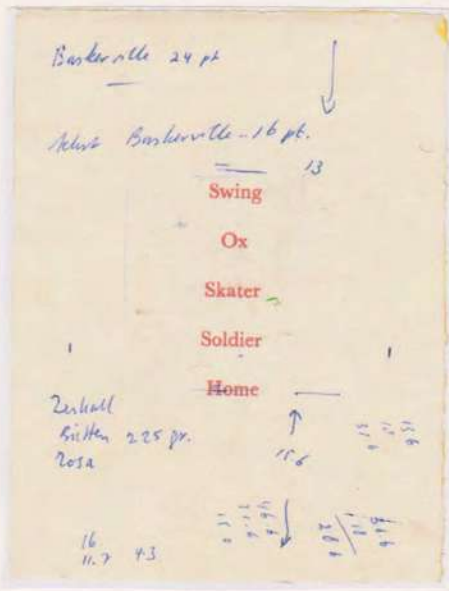 Baskerville 24 pt
Baskerville - 16 pt.
13
Swing
Ox
Skater
Soldier
Home
Zerkall
Bütten 225 gr.
rosa
15.6
16
11.7 4.3